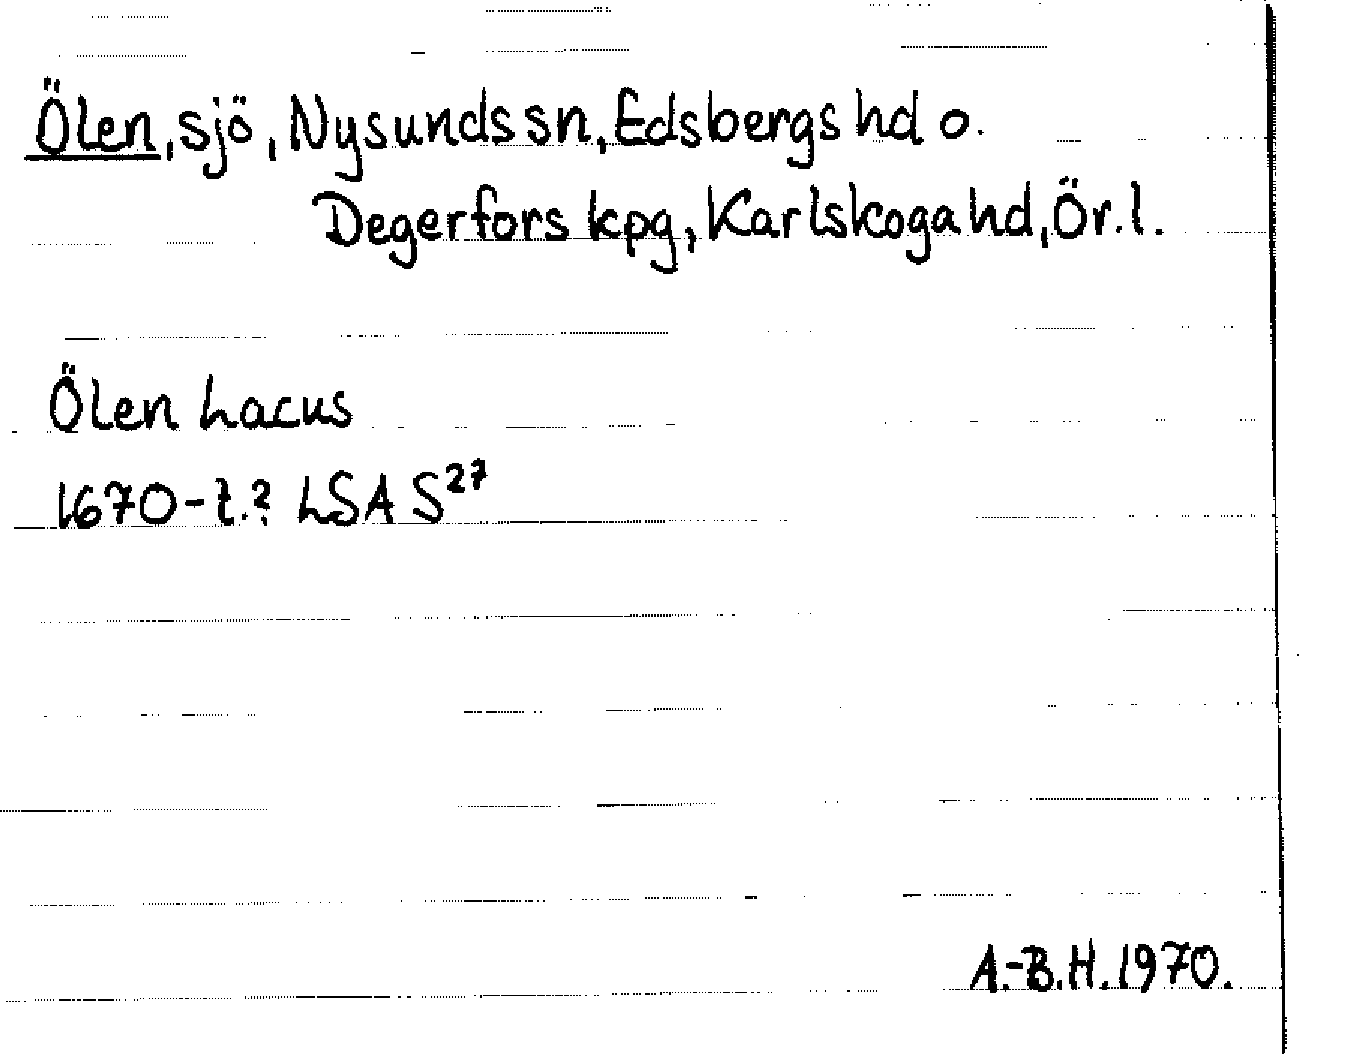 Ölen, sjö, Nysunds sn, Edsbergs hd o.
Degerfors kpg, Karlskoga hd, Ör. l.
Ölen Lacus
1670-t.? LSA S27
A.-B.H. 1970.